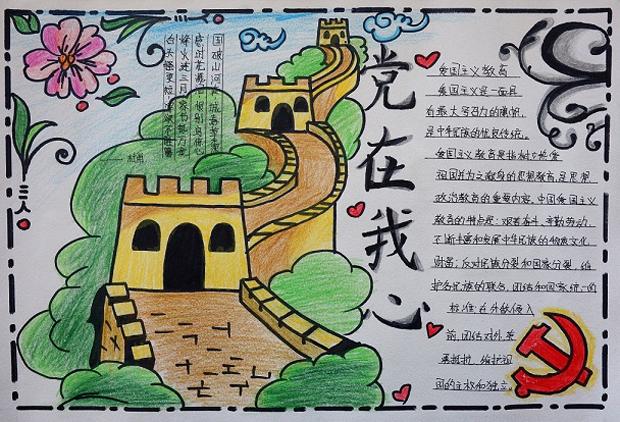 国破山河在 城春草木深
感时花溅泪 恨别鸟惊心
烽火连三月 家书抵万金
白头搔更短 浑欲不胜簪
——杜甫
党在我心
爱国主义教育
爱国主义是一面具
有最大号召力的旗帜,
是中华民族的优良传统。
爱国主义教育是指树立热爱
祖国并为之献身的思想教育,是思想
政治教育的重要内容。中国爱国主义
教育的特点是:艰苦奋斗、辛勤劳动,
不断丰富和发展中华民族的物质文化
财富;反对民族分裂和国家分裂,维
护各民族的联合、团结和国家统一的
标准;在外敌侵入
前,团结对外,英
勇抵抗,维护祖
国的主权和独立。